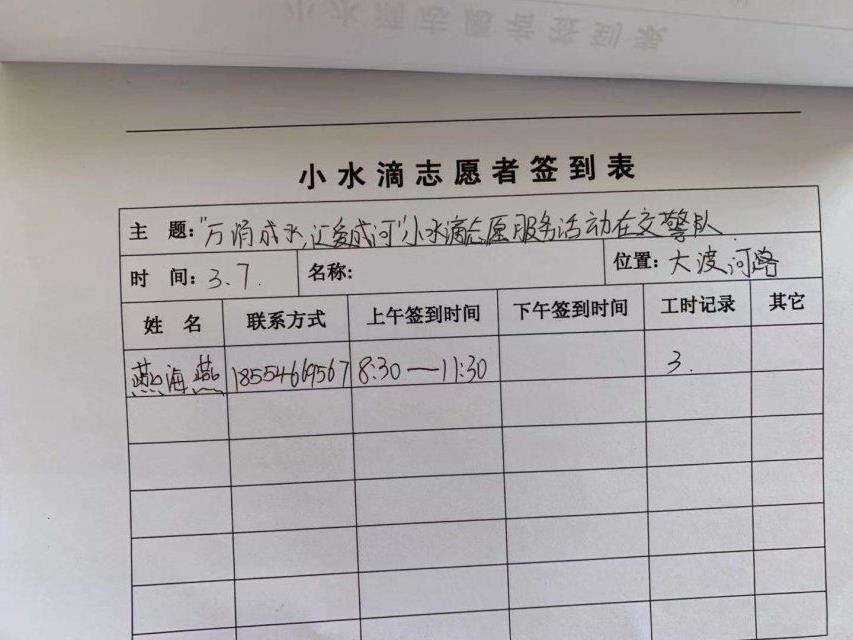 小水滴志愿者签到表
主 题:"万涓成水,汇爱成河"小水滴志愿服务活动在交警队
时 间:3.7. 名称: 位置:大渡河路
姓 名 联系方式 上午签到时间 下午签到时间 工时记录 其它
燕海燕 18554669567 8:30—11:30 3.